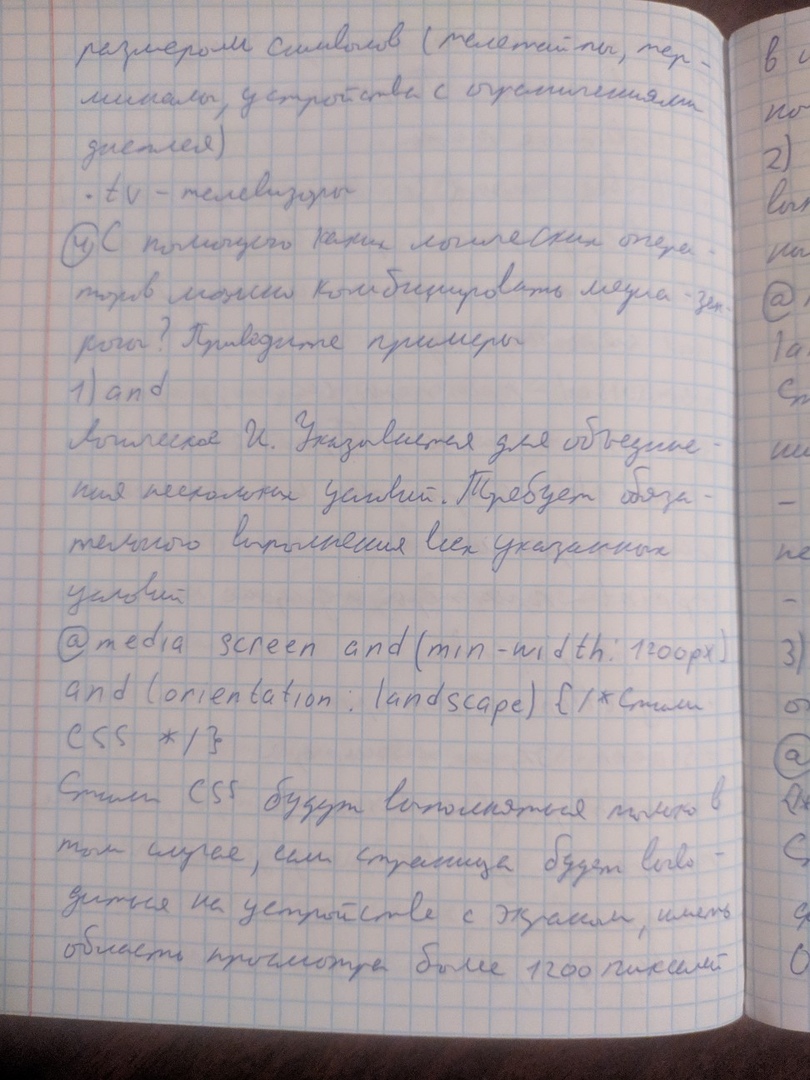 размером символов (телетайпы, тер-
миналы, устройства с ограничениями
дисплея)
· tv – телевизоры
4) С помощью каких логических опера-
торов можно комбинировать медиа-зап-
росы? Приведите примеры
1) and
Логическое И. Указывается для объедине-
ния нескольких условий. Требует обяза-
тельного выполнения всех указанных
условий
@media screen and (min-width: 1200px)
and (orientation: landscape) {/*Стили
CSS */}
Стили CSS будут выполняться только в
том случае, если страница будет выво-
диться на устройстве с экраном, иметь
область просмотра более 1200 пикселей
в
но
2)
вып
на
@
la
Ст
ни
–
не
–
3)
от
@
{/*
С